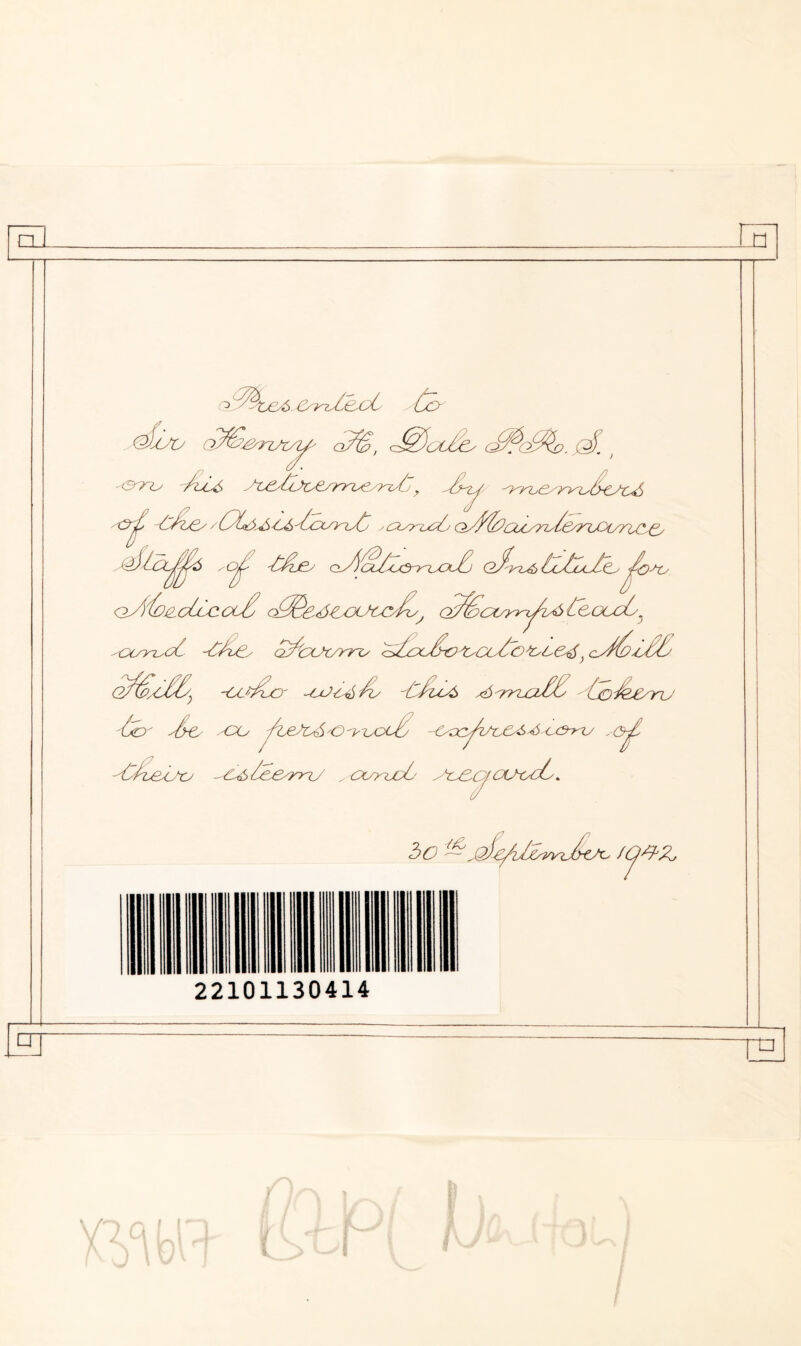 Presented to
Sir Henry H, Dale P.R.S.,
on his retirement, by members
of the Assistant and Maintenance
Staffs of the National Institute for
Medical Research, Hampstead,
and the Farm Laboratories, Mill
Hill, who wish this small token
to be a personal expression of
their esteem and regard.
30th September 1942
22101130414
X39617 BZP( Newton)